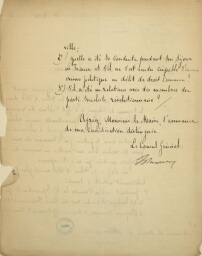 ville;
2º/ quelle a été la conduite pendant son séjour
en France et s'il ne s'est rendu coupable d'aucun
crime politique ou délit de droit commun?
3º/ S'il a été en relations avec des membres du
parti socialiste révolutionnaire?
Agréez, Monsieur le Maire, l'assurance
de ma considération distinguée.
Le Consul Général